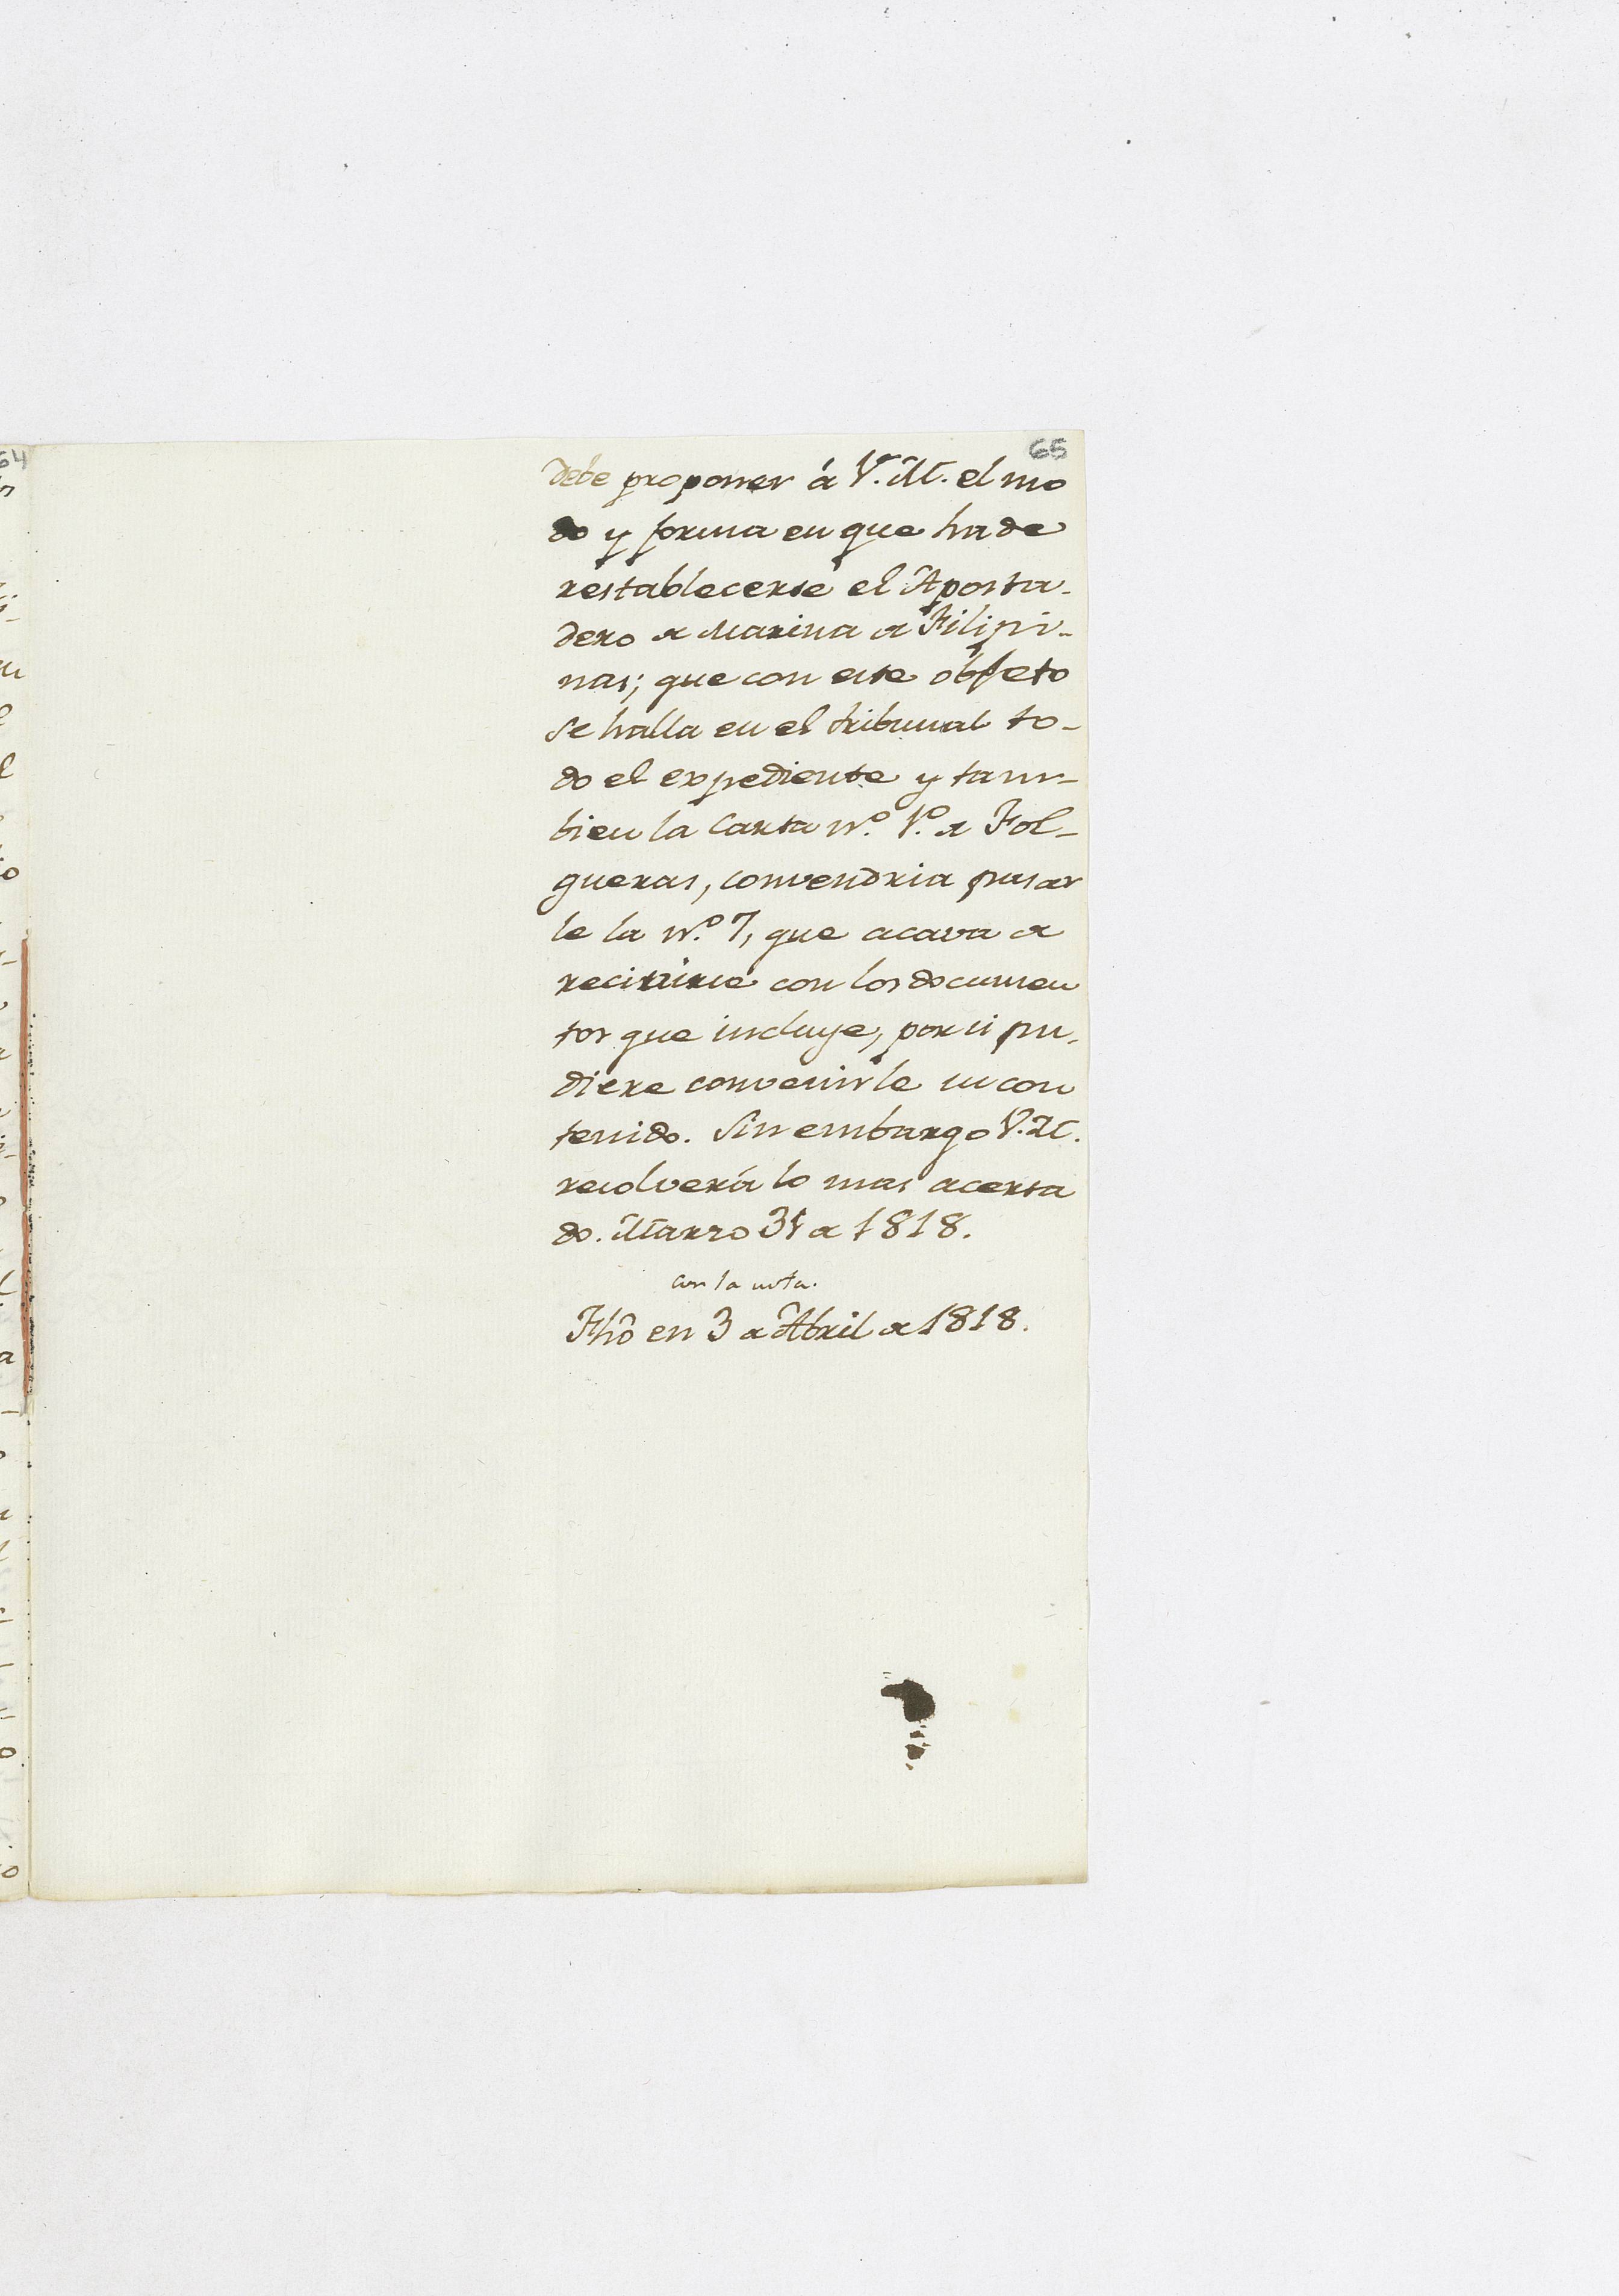 65
debe proponer á V. M. el mo
do y forma en que ha de
restablecerse el Aposta-
dero de Marina de Filipi-
nas; que con este objeto
se halla en el tribunal to-
do el expediente y tam-
bien la Carta nº. 1º. de Fol-
gueras, convendria pasar
le la nº. 7, que acava de
recivirse con los documen
tos que incluye, por si pu-
diere convenirle su con
tenido. Sin embargo V. M.
resolverá lo mas acerta
do. Marzo 31 de 1818.
con la nota.
Fho en 3 de Abril de 1818.